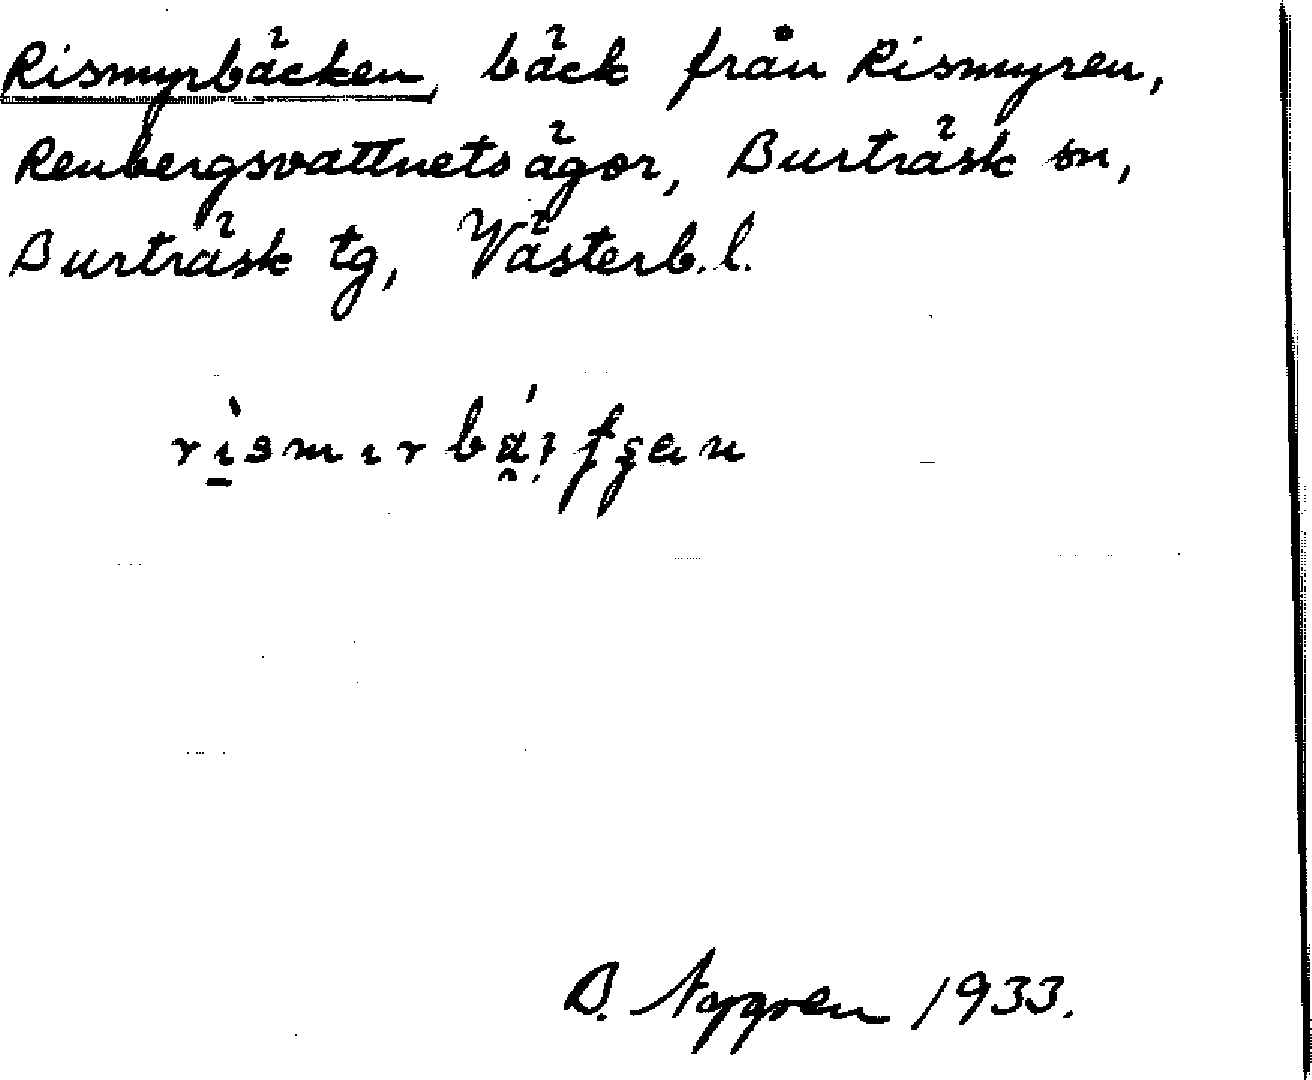 Rismyrbäcken, bäck från Rismyren,
Renbergsvattnets ägor, Burträsk sn,
Burträsk tg, Västerb. l.
B. Nygren 1933.